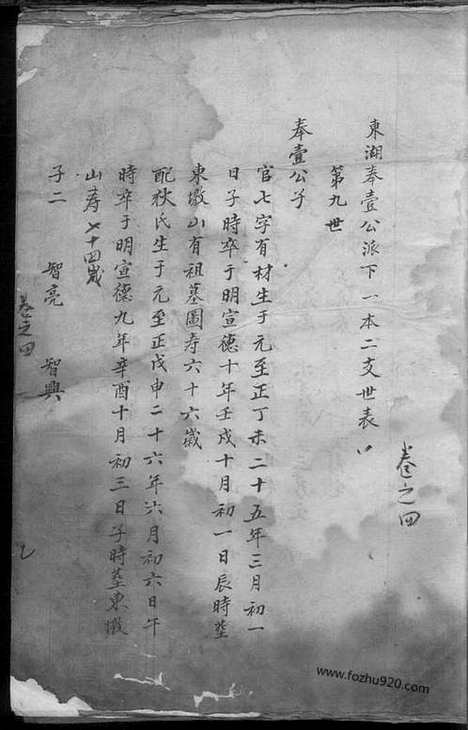 卷之四
東湖奉壹公派下一本二支世表
第九世
奉壹公子
官七字有材生于元至正丁未二十五年三月初一
日子時卒于明宣德十年壬戌十月初一日辰時塟
東墩山有祖墓圖壽六十六歲
配狄氏生于元至正戊申二十六年六月初六日午
時卒于明宣德九年辛酉十月初三日子時塟東墩
山壽七十四歲
子二
智亮 智興
卷之四
www.fozhu920.com